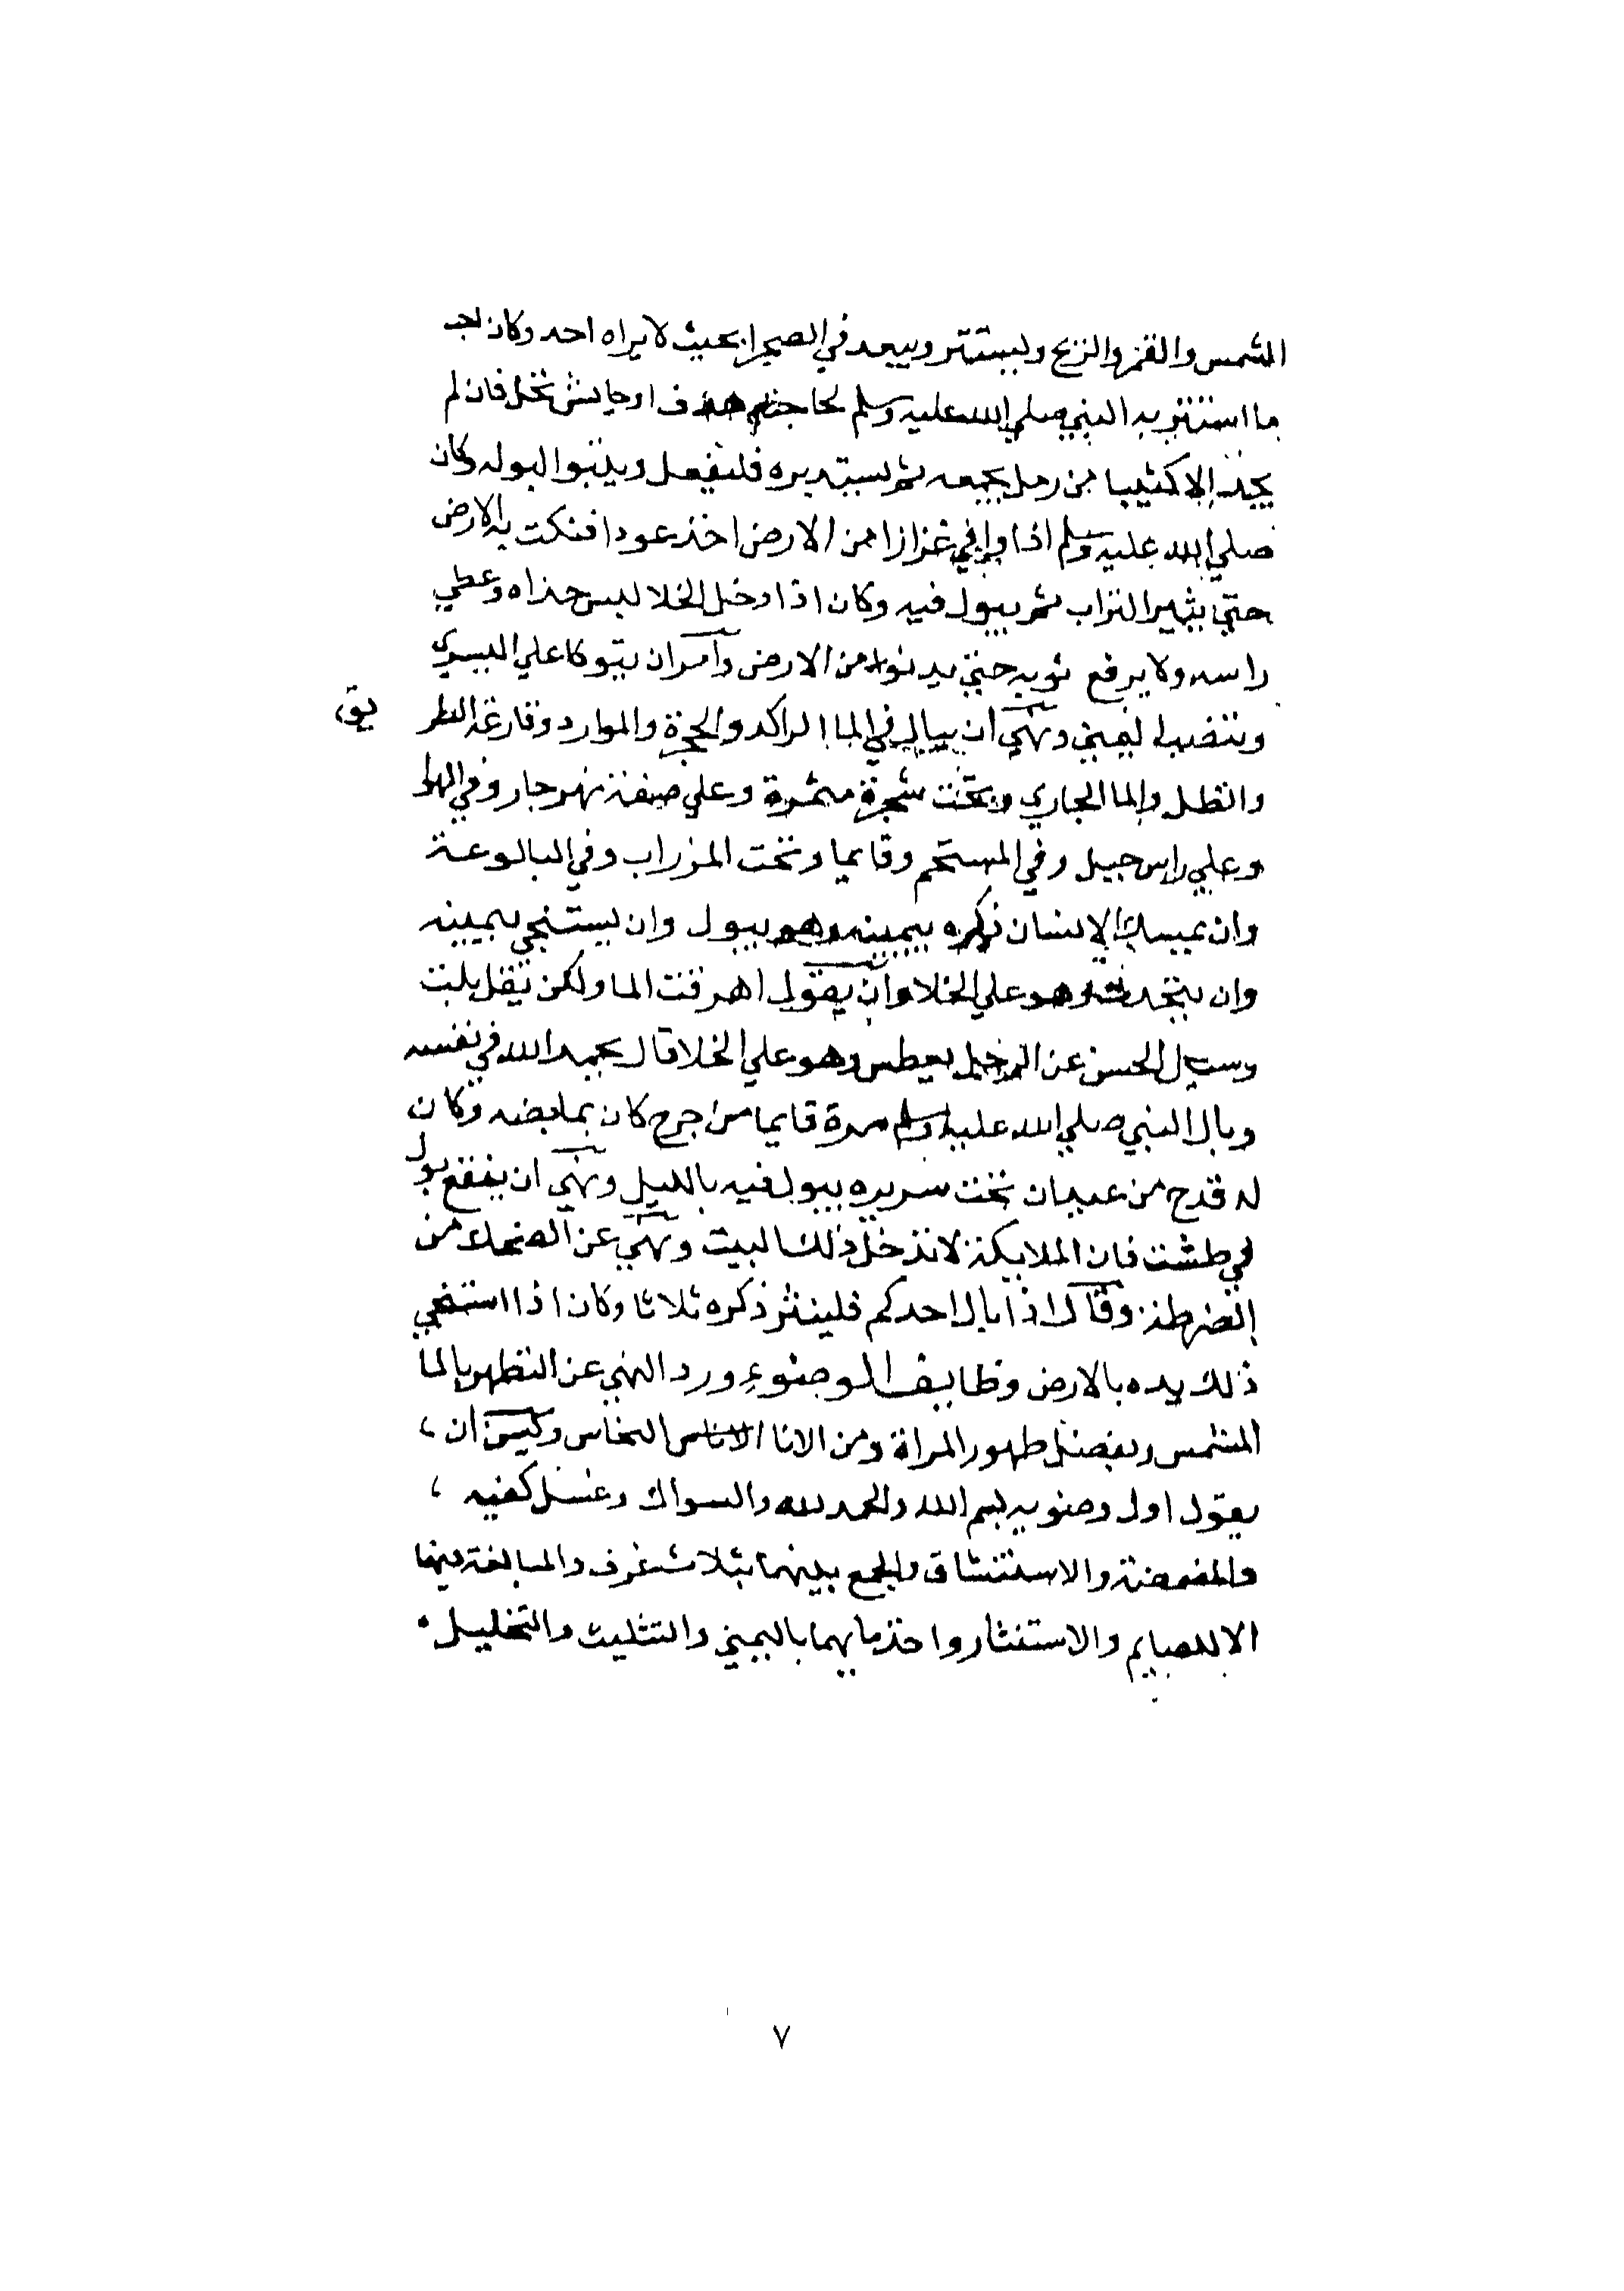 الشمس والقمر والريح وليستتر ويبعد في الصحرا بحيث لا يراه احد وكان احب
ما استتر به النبي صلي الله عليه وسلم لحاجته هدف او حايش نخل فان لم
يجد الا كثيبا من رمل يجمعه ثم يستدبره فليفعل ويتبوا لبوله وكان
صلي الله عليه وسلم اذا وافي عزازا من الارض اخذ عودا فنكت به الارض
حتي يثير التراب ثم يبول فيه وكان اذا دخل الخلا لبس حذاه وغطي
راسه ولا يرفع ثوبه حتي يدنوا من الارض وامر ان يتوكا علي اليسري
وينصب اليمني ونهي ان يبال في الما الراكد والحجرة والموارد وقارعة الطر يق
والظل والما الجاري وتحت شجرة مثمرة وعلي ضفة نهر جار وفي الهوا
وعلي راس جبل وفي المستحم وقايما وتحت المزراب وفي البالوعة
وان يمسك الانسان ذكره بيمينه وهو يبول وان يستنجي بيمينه
وان يتحدث وهو علي الخلا وان يقول اهرقت الما ولكن يقل بلت
وسيل الحسن عن الرجل يعطس وهو علي الخلا قال يحمد الله في نفسه
وبال النبي صلي الله عليه وسلم مرة قايما من جرح كان بمابضه وكان
له قدح من عيدان تحت سريره يبول فيه بالليل ونهي ان ينقع بول
في طشت فان الملايكة لا تدخل ذلك البيت ونهي عن الضحك من
الضرطة وقال اذا بال احدكم فلينثر ذكره ثلاثا وكان اذا استنجي
ذلك يده بالارض وظايف الوضوء ورد النهي عن التطهر بالما
المشمس وبفضل طهور المراة ومن الانا النحاس وكيسن ان ،
يقول اول وضويه بسم الله والحمد لله والسواك وغسل كفيه ،
والمضمضة والاستنشاق والجمع بينهما بثلاث غرف والمبالغة فيهما
الا للصايم والاستنثار واخذ مايهما باليمني والتثليث والتخليل .
٧